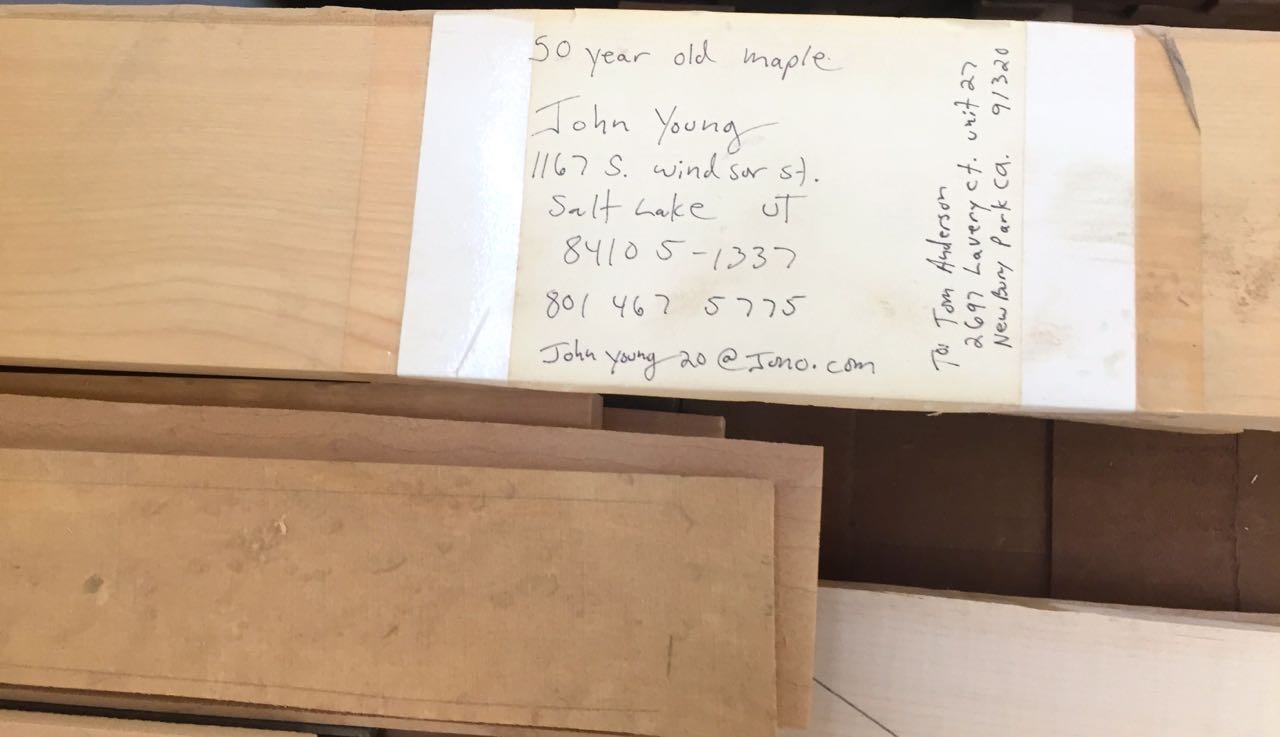 50 year old maple
John Young
1167 S. windsor st.
Salt Lake UT
84105-1337
801 467 5775
John young 20@Juno.com
To: Tom Anderson
2697 Lavery ct. unit 27
New Bury Park ca. 91320